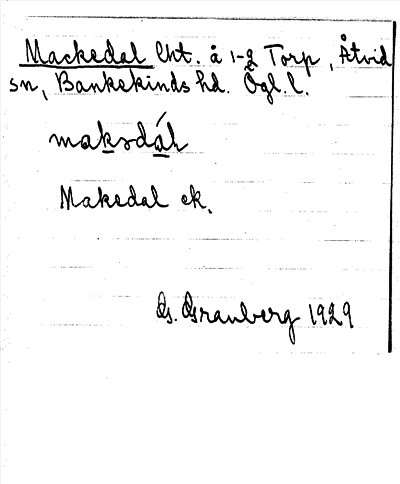 Mackedal lht. å 1-2 Torp, Åtvid
sn, Bankekinds hd. Ögl. l.
maksdál
Makedal ek.
G. Granberg 1929